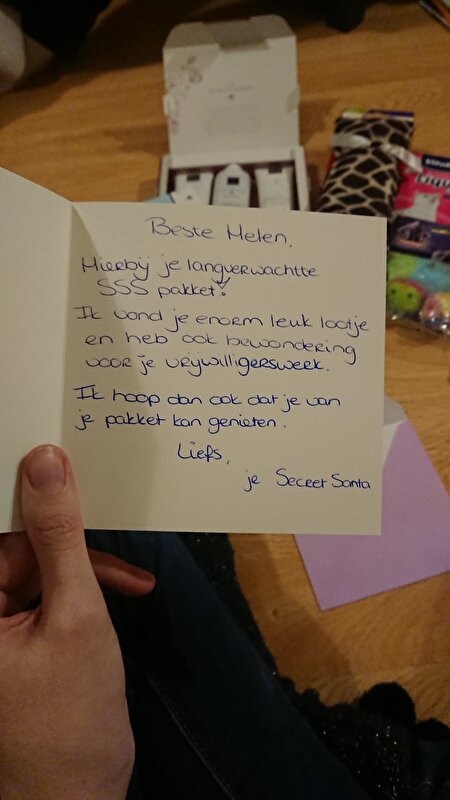 Beste Melen,
Hierbij je langverwachtte
SSS pakket!
Ik vond je enorm leuk lootje
en heb ook bewondering
voor je vrijwilligerswerk.
Ik hoop dan ook dat je van
je pakket kan genieten.
Liefs,
je Secret Santa